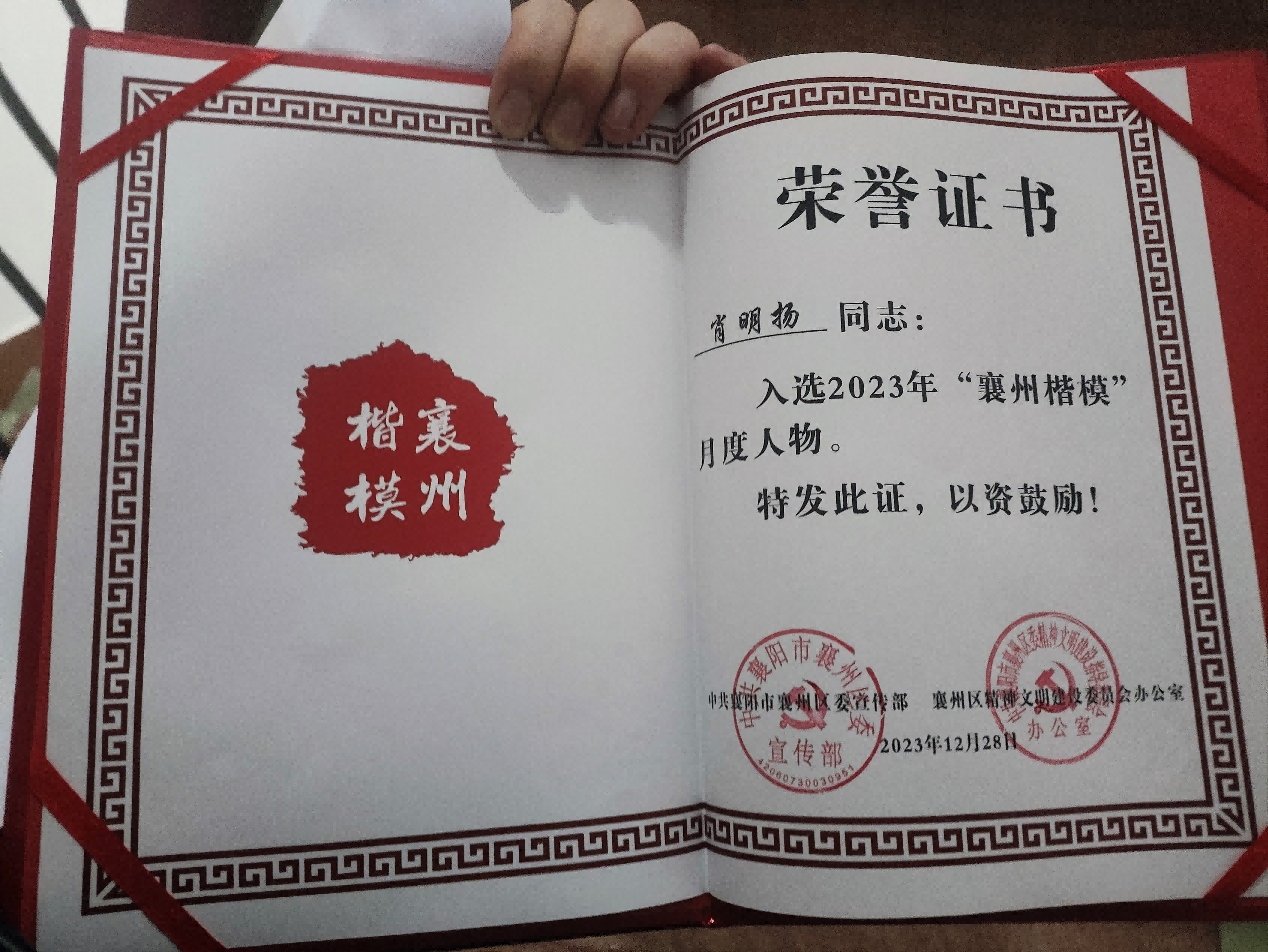 襄州
楷模
荣誉证书
肖明扬 同志：
入选2023年“襄州楷模”
月度人物。
特发此证，以资鼓励！
中共襄阳市襄州区委宣传部 襄州区精神文明建设委员会办公室
2023年12月28日
中共襄阳市襄州区委
宣传部
42060730030951
办公室